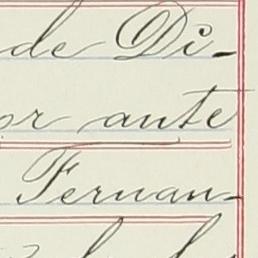 de Di-
or ante
Fernan-